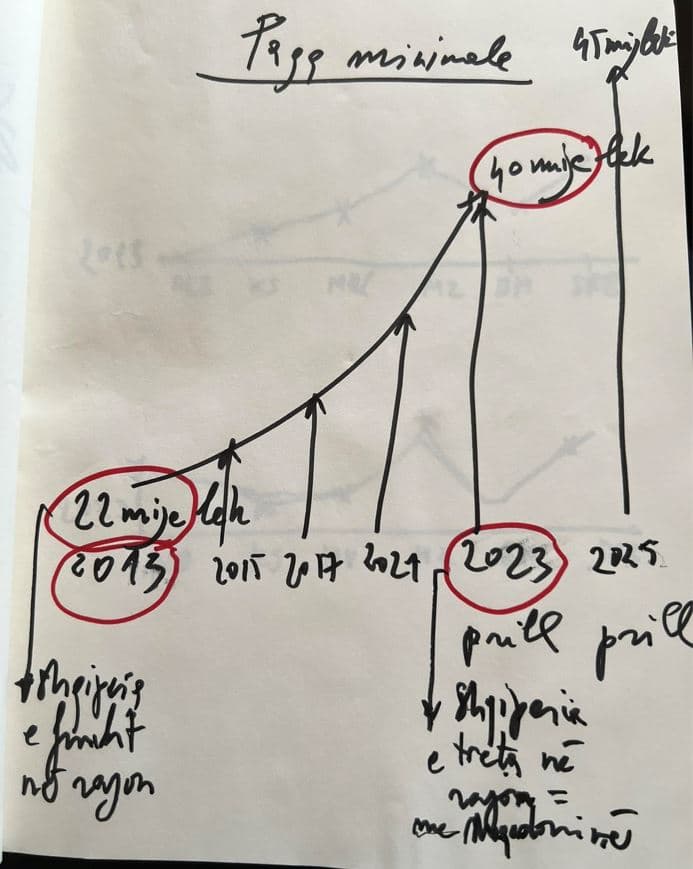 Paga minimale
45 mij lek
40 mije lek
22 mije lek
2013 2015 2017 2021 2023 2025
prill prill
Shqipëria
e fundit
në rajon
Shqiperia
e treta në
rajon =
me Maqedoninë
2023